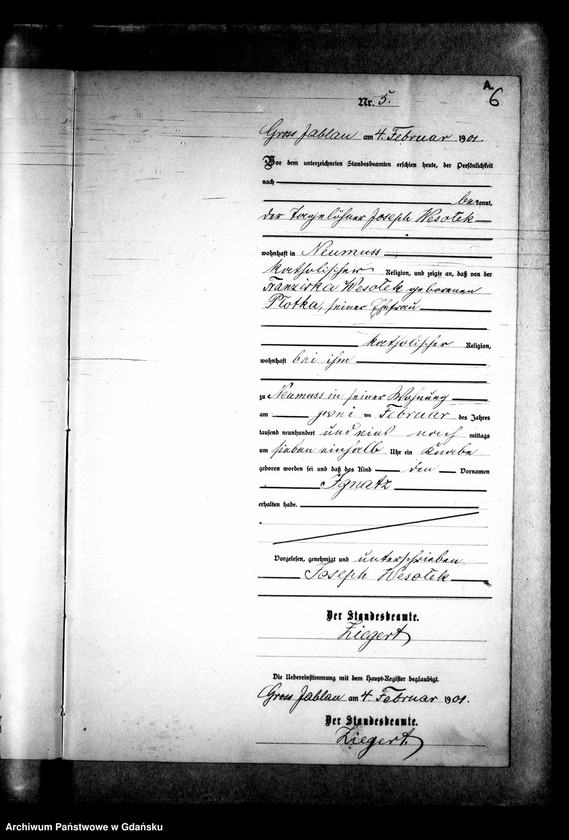 A.
6
Nr. 5.
Gross Jablau am 4. Februar 1901.
Vor dem unterzeichneten Standesbeamten erschien heute, der Persönlichkeit
nach
bekannt,
der Tagelöhner Joseph Wesołek
wohnhaft in Neumuss
katholischer Religion, und zeigte an, daß von der
Franziska Wesołek geborenen
Plotka, seiner Ehefrau
katholischer Religion,
wohnhaft bei ihm
zu Neumuss in seiner Wohnung
am zwei ten Februar des Jahres
tausend neunhundert und eins nach mittags
um sieben einhalb Uhr ein Knabe
geboren worden sei und daß das Kind den Vornamen
Ignatz
erhalten habe.
Vorgelesen, genehmigt und unterschrieben
Joseph Wesołek
Der Standesbeamte.
Ziegert
Die Uebereinstimmung mit dem Haupt-Register beglaubigt.
Gross Jablau am 4. Februar 1901.
Der Standesbeamte.
Ziegert.
Archiwum Państwowe w Gdańsku